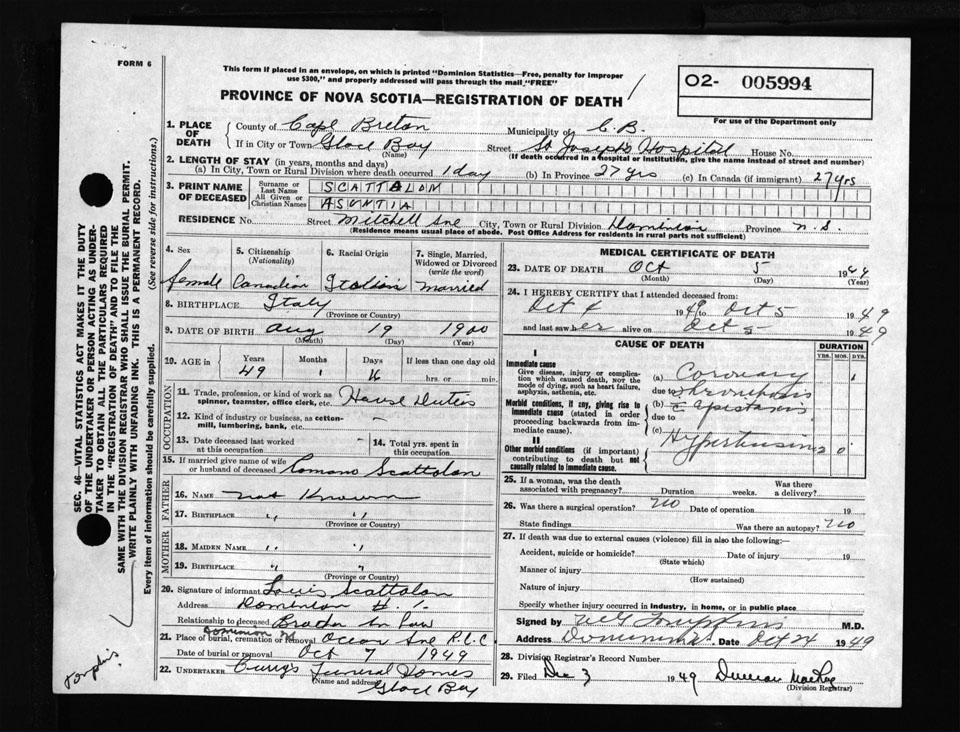 FORM 6
This form if placed in an envelope, on which is printed "Dominion Statistics—Free, penalty for improper
use $300," and properly addressed will pass through the mail "FREE"
PROVINCE OF NOVA SCOTIA—REGISTRATION OF DEATH
O2- 005994
For use of the Department only
1. PLACE OF DEATH
County of Cape Breton Municipality of C.B.
If in City or Town Glace Bay Street St Joseph's Hospital House No.
(Name) (If death occurred in a hospital or institution, give the name instead of street and number)
2. LENGTH OF STAY (in years, months and days)
(a) In City, Town or Rural Division where death occurred 1 day (b) In Province 27 yrs (c) In Canada (if immigrant) 27 yrs
3. PRINT NAME OF DECEASED
Surname or Last Name SCATTALON
All Given or Christian Names ASUNTIA
RESIDENCE No. Street Mitchell Ave City, Town or Rural Division Dominion Province N.S.
(Residence means usual place of abode. Post Office Address for residents in rural parts not sufficient)
4. Sex
female
5. Citizenship (Nationality)
Canadian
6. Racial Origin
Italian
7. Single, Married, Widowed or Divorced (write the word)
married
8. BIRTHPLACE Italy
(Province or Country)
9. DATE OF BIRTH Aug 19 1900
(Month) (Day) (Year)
10. AGE in Years Months Days If less than one day old
49 1 16 hrs. or min.
OCCUPATION
11. Trade, profession, or kind of work as
spinner, teamster, office clerk, etc. House Duties
12. Kind of industry or business, as cotton-
mill, lumbering, bank, etc.
13. Date deceased last worked
at this occupation
14. Total yrs. spent in
this occupation
15. If married give name of wife
or husband of deceased Romano Scattolon
FATHER
16. NAME not Known
17. BIRTHPLACE " "
(Province or Country)
MOTHER
18. MAIDEN NAME " "
19. BIRTHPLACE " "
(Province or Country)
20. Signature of informant Louis Scattolon
Address Dominion
Relationship to deceased Brother in law
21. Place of burial, cremation or removal Dominion Ocean Ave R.C.C.
Date of burial or removal Oct 7 1949
22. UNDERTAKER Curry's Funeral Homes
(Name and address) Glace Bay
MEDICAL CERTIFICATE OF DEATH
23. DATE OF DEATH Oct 5 1949
(Month) (Day) (Year)
24. I HEREBY CERTIFY that I attended deceased from:
Oct 4 1949 to Oct 5 1949
and last saw her alive on Oct 5 1949
CAUSE OF DEATH DURATION
YRS. MOS. DYS.
I
Immediate cause
Give disease, injury or complica-
tion which caused death, NOT the
mode of dying, such as heart failure,
asphyxia, asthenia, etc.
(a) Coronary 1
due to Thrombosis
Morbid conditions, if any, giving rise to
immediate cause (stated in order
proceeding backwards from im-
mediate cause).
(b) c Epistaxis
due to
(c)
II
Other morbid conditions (if important)
contributing to death but not
causally related to immediate cause.
Hypertension 2 0
25. If a woman, was the death
associated with pregnancy? Duration weeks. Was there
a delivery?
26. Was there a surgical operation? no Date of operation 19
State findings Was there an autopsy? no
27. If death was due to external causes (violence) fill in also the following:—
Accident, suicide or homicide? Date of injury 19
(State which)
Manner of injury
(How sustained)
Nature of injury
Specify whether injury occurred in industry, in home, or in public place
Signed by Tompkins M.D.
Address Dominion Date Oct 24 1949
28. Division Registrar's Record Number
29. Filed Dec 3 1949 Duncan MacKay
(Division Registrar)
SEC. 46—VITAL STATISTICS ACT MAKES IT THE DUTY
OF THE UNDERTAKER OR PERSON ACTING AS UNDER-
TAKER TO OBTAIN ALL THE PARTICULARS REQUIRED
IN THE "REGISTRATION OF DEATH" AND TO FILE THE
SAME WITH THE DIVISION REGISTRAR WHO SHALL ISSUE THE BURIAL PERMIT.
WRITE PLAINLY WITH UNFADING INK. THIS IS A PERMANENT RECORD.
Every item of information should be carefully supplied. (See reverse side for instructions.)